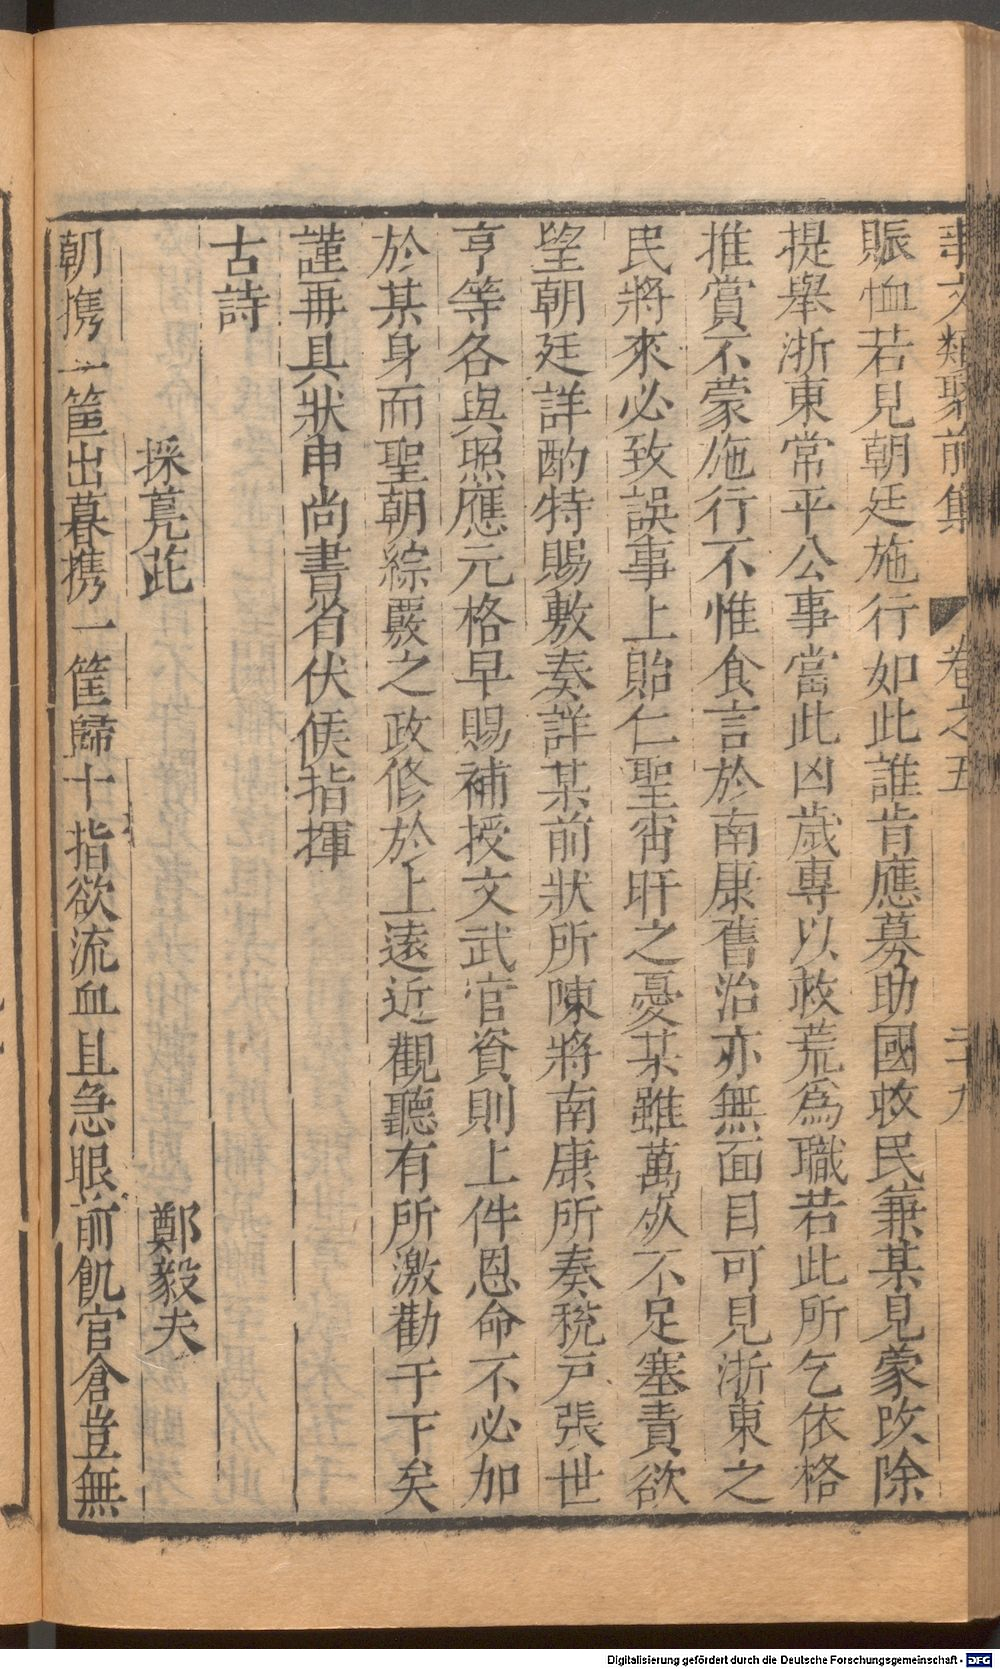 事文類聚前集 卷之五 二十九
賑恤若見朝廷施行如此誰肯應募助國救民兼某見蒙改除
提舉浙東常平公事當此凶歲專以救荒爲職若此所乞依格
推賞不蒙施行不惟食言於南康舊治亦無面目可見浙東之
民將來必致誤事上貽仁聖宵旰之憂某雖萬死不足塞責欲
望朝廷詳酌特賜敷奏詳某前狀所陳將南康所奏稅戶張世
亨等各與照應元格早賜補授文武官資則上件恩命不必加
於某身而聖朝綜覈之政修於上遠近觀聽有所激勸于下矣
謹再具狀申尚書省伏候指揮
古詩
採鳧茈 鄭毅夫
朝携一筐出暮携一筐歸十指欲流血且急眼前飢官倉豈無
Digitalisierung gefördert durch die Deutsche Forschungsgemeinschaft - DFG